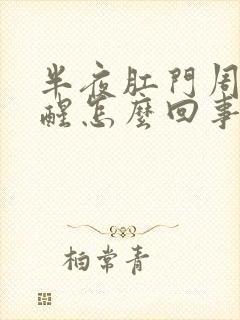 半夜肛門周
醒怎麼回事
柏常青